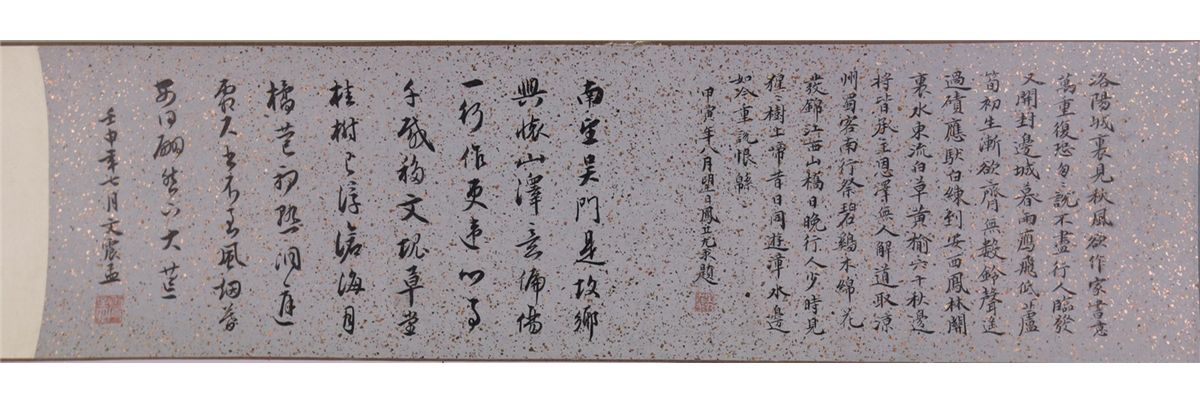 洛陽城裏見秋風欲作家書意
萬重復恐匆々說不盡行人臨發
又開封邊城暮雨雁飛低蘆
筍初生漸欲齊無數鈴聲遙
過磧應馱白練到安西鳳林關
裏水東流白草黃榆六十秋邊
將皆承主恩澤無人解道取涼
州蜀客南行祭碧雞木綿花
發錦江西山橋日晚行人少時見
猩々樹上啼昔日同遊漳水邊
如今重說恨綿
甲寅年八月望日鳳丘元題
南望吳門是故鄉
興懷山澤意偏傷
一行作吏違心事
千載移文規草堂
桂樹已浮滄海月
橘苞初熟洞庭
霜風烟
大荒
壬申年七月文震孟